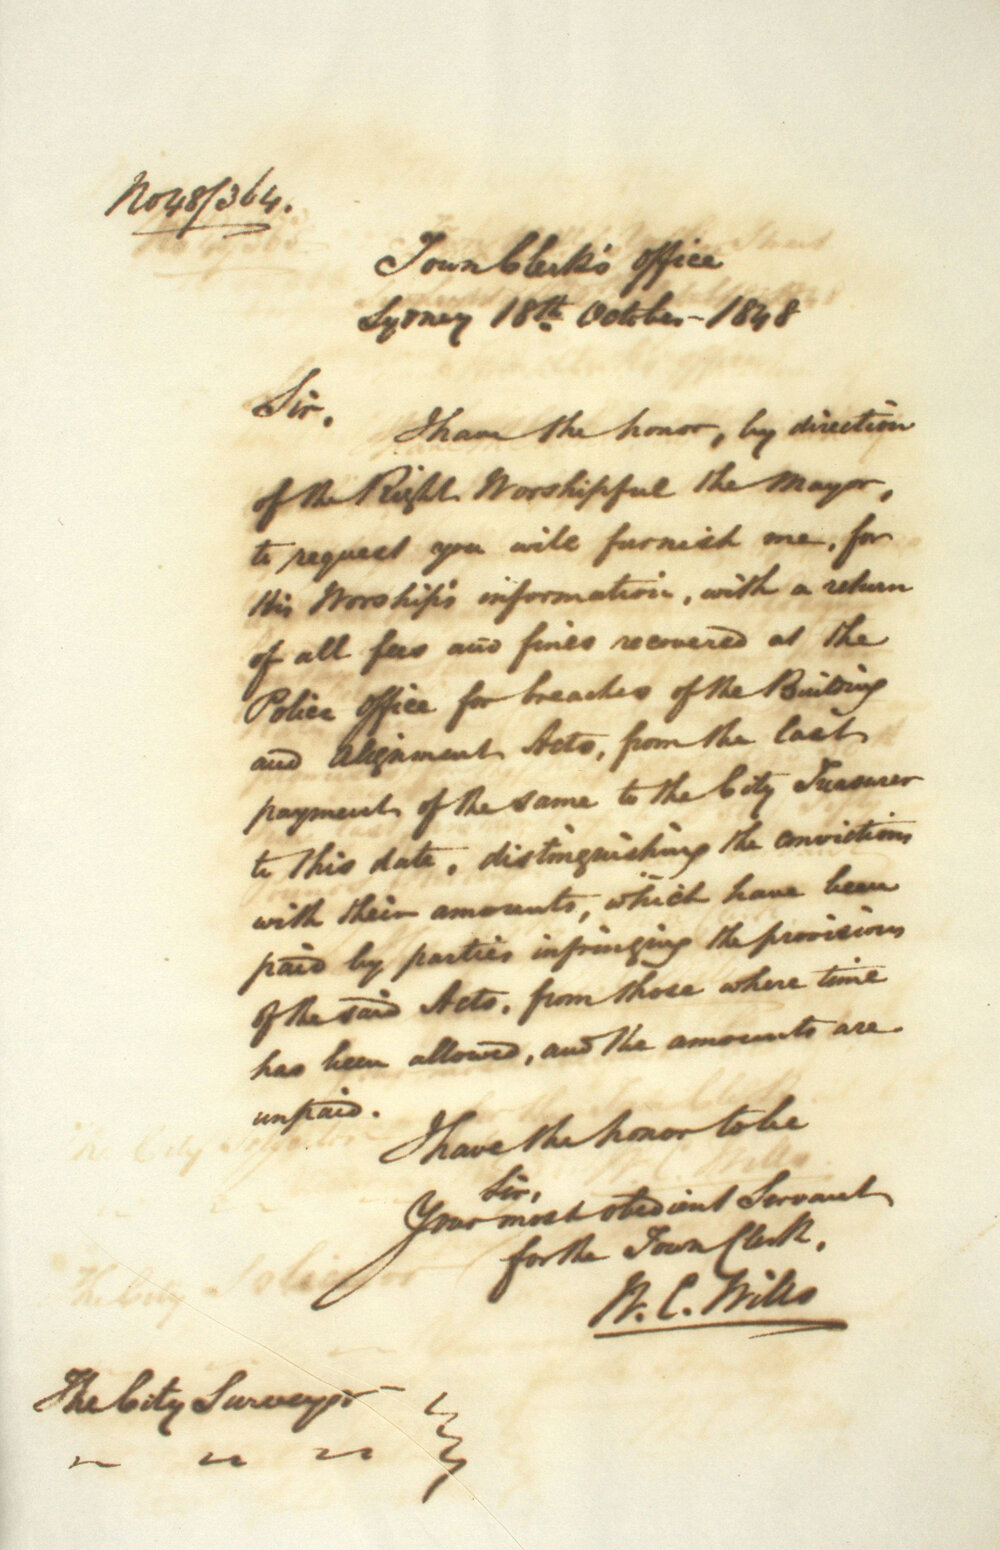 No 48/364.
Town Clerk's Office
Sydney 18th October 1848
Sir,
I have the honor, by direction
of the Right Worshipful the Mayor,
to request you will furnish me, for
His Worship's information, with a return
of all fees and fines recovered at the
Police Office for breaches of the Building
and Alignment Acts, from the last
payment of the same to the City Treasurer
to this date, distinguishing the convictions
with their amounts, which have been
paid by parties infringing the provisions
of the said Acts, from those where time
has been allowed, and the amounts are
unpaid.
I have the honor to be
Sir,
Your most obedient Servant
for the Town Clerk,
W. C. Wills
The City Surveyor